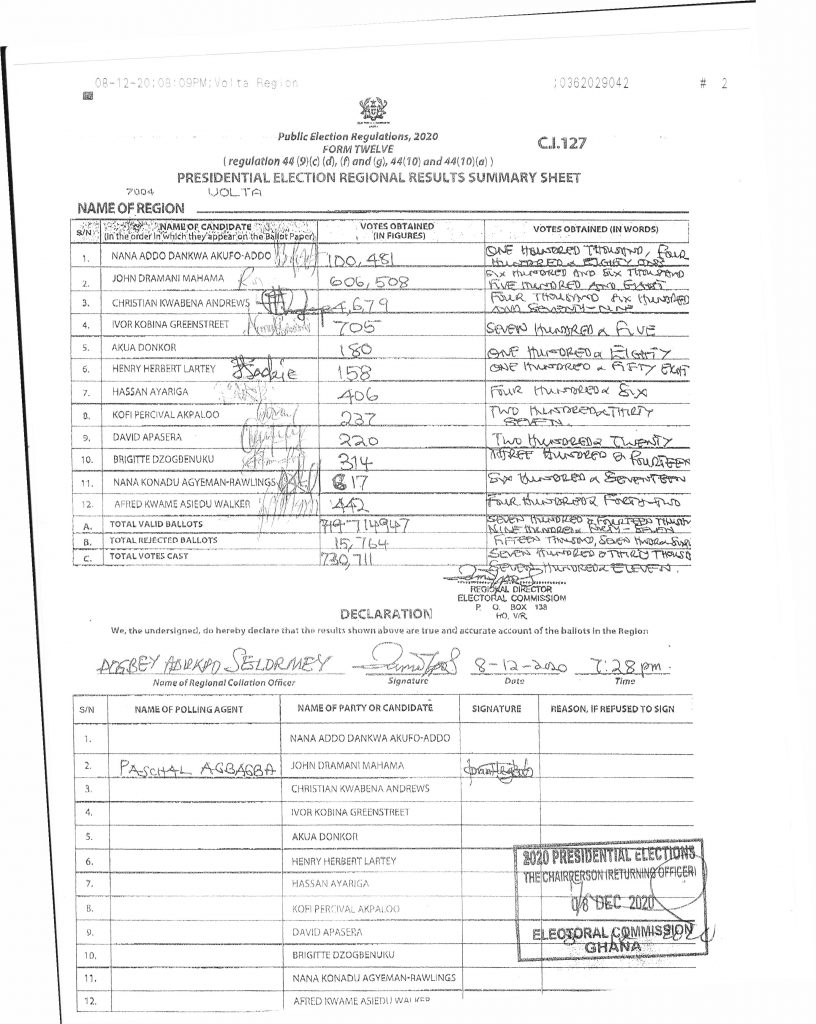 08-12-20;08:09PM;Volta Region ;0362029042 # 2
Public Election Regulations, 2020
FORM TWELVE
C.I.127
( regulation 44 (9)(c) (d), (f) and (g), 44(10) and 44(10)(a) )
PRESIDENTIAL ELECTION REGIONAL RESULTS SUMMARY SHEET
7004 VOLTA
NAME OF REGION
S/N NAME OF CANDIDATE (In the order in which they appear on the Ballot Paper) VOTES OBTAINED (IN FIGURES) VOTES OBTAINED (IN WORDS)
1. NANA ADDO DANKWA AKUFO-ADDO 100,481 ONE HUNDRED THOUSAND, FOUR HUNDRED & EIGHTY ONE
2. JOHN DRAMANI MAHAMA 606,508 SIX HUNDRED AND SIX THOUSAND FIVE HUNDRED AND EIGHT
3. CHRISTIAN KWABENA ANDREWS 4,679 FOUR THOUSAND SIX HUNDRED AND SEVENTY-NINE
4. IVOR KOBINA GREENSTREET 705 SEVEN HUNDRED & FIVE
5. AKUA DONKOR 180 ONE HUNDRED & EIGHTY
6. HENRY HERBERT LARTEY 158 ONE HUNDRED & FIFTY EIGHT
7. HASSAN AYARIGA 406 FOUR HUNDRED & SIX
8. KOFI PERCIVAL AKPALOO 237 TWO HUNDRED & THIRTY SEVEN.
9. DAVID APASERA 220 TWO HUNDRED & TWENTY
10. BRIGITTE DZOGBENUKU 314 THREE HUNDRED & FOURTEEN
11. NANA KONADU AGYEMAN-RAWLINGS 617 SIX HUNDRED & SEVENTEEN
12. AFRED KWAME ASIEDU WALKER 442 FOUR HUNDRED & FORTY-TWO
A. TOTAL VALID BALLOTS 714947 SEVEN HUNDRED & FOURTEEN THOUS NINE HUNDRED & FORTY-SEVEN
B. TOTAL REJECTED BALLOTS 15,764 FIFTEEN THOUSAND, SEVEN HUNDR & SIXTY
C. TOTAL VOTES CAST 730,711 SEVEN HUNDRED & THIRTY THOUSD SEVEN HUNDRED & ELEVEN.
REGIONAL DIRECTOR
ELECTORAL COMMISSION
P. O. BOX 138
HO, V/R
DECLARATION
We, the undersigned, do hereby declare that the results shown above are true and accurate account of the ballots in the Region
SELORMEY 8-12-2020 7:28pm.
Name of Regional Collation Officer Signature Date Time
S/N NAME OF POLLING AGENT NAME OF PARTY OR CANDIDATE SIGNATURE REASON, IF REFUSED TO SIGN
1. NANA ADDO DANKWA AKUFO-ADDO
2. PASCHAL AGBAGBA JOHN DRAMANI MAHAMA
3. CHRISTIAN KWABENA ANDREWS
4. IVOR KOBINA GREENSTREET
5. AKUA DONKOR
6. HENRY HERBERT LARTEY
7. HASSAN AYARIGA
8. KOFI PERCIVAL AKPALOO
9. DAVID APASERA
10. BRIGITTE DZOGBENUKU
11. NANA KONADU AGYEMAN-RAWLINGS
12. AFRED KWAME ASIEDU WALKER
2020 PRESIDENTIAL ELECTIONS
THE CHAIRPERSON (RETURNING OFFICER)
08 DEC 2020
ELECTORAL COMMISSION
GHANA